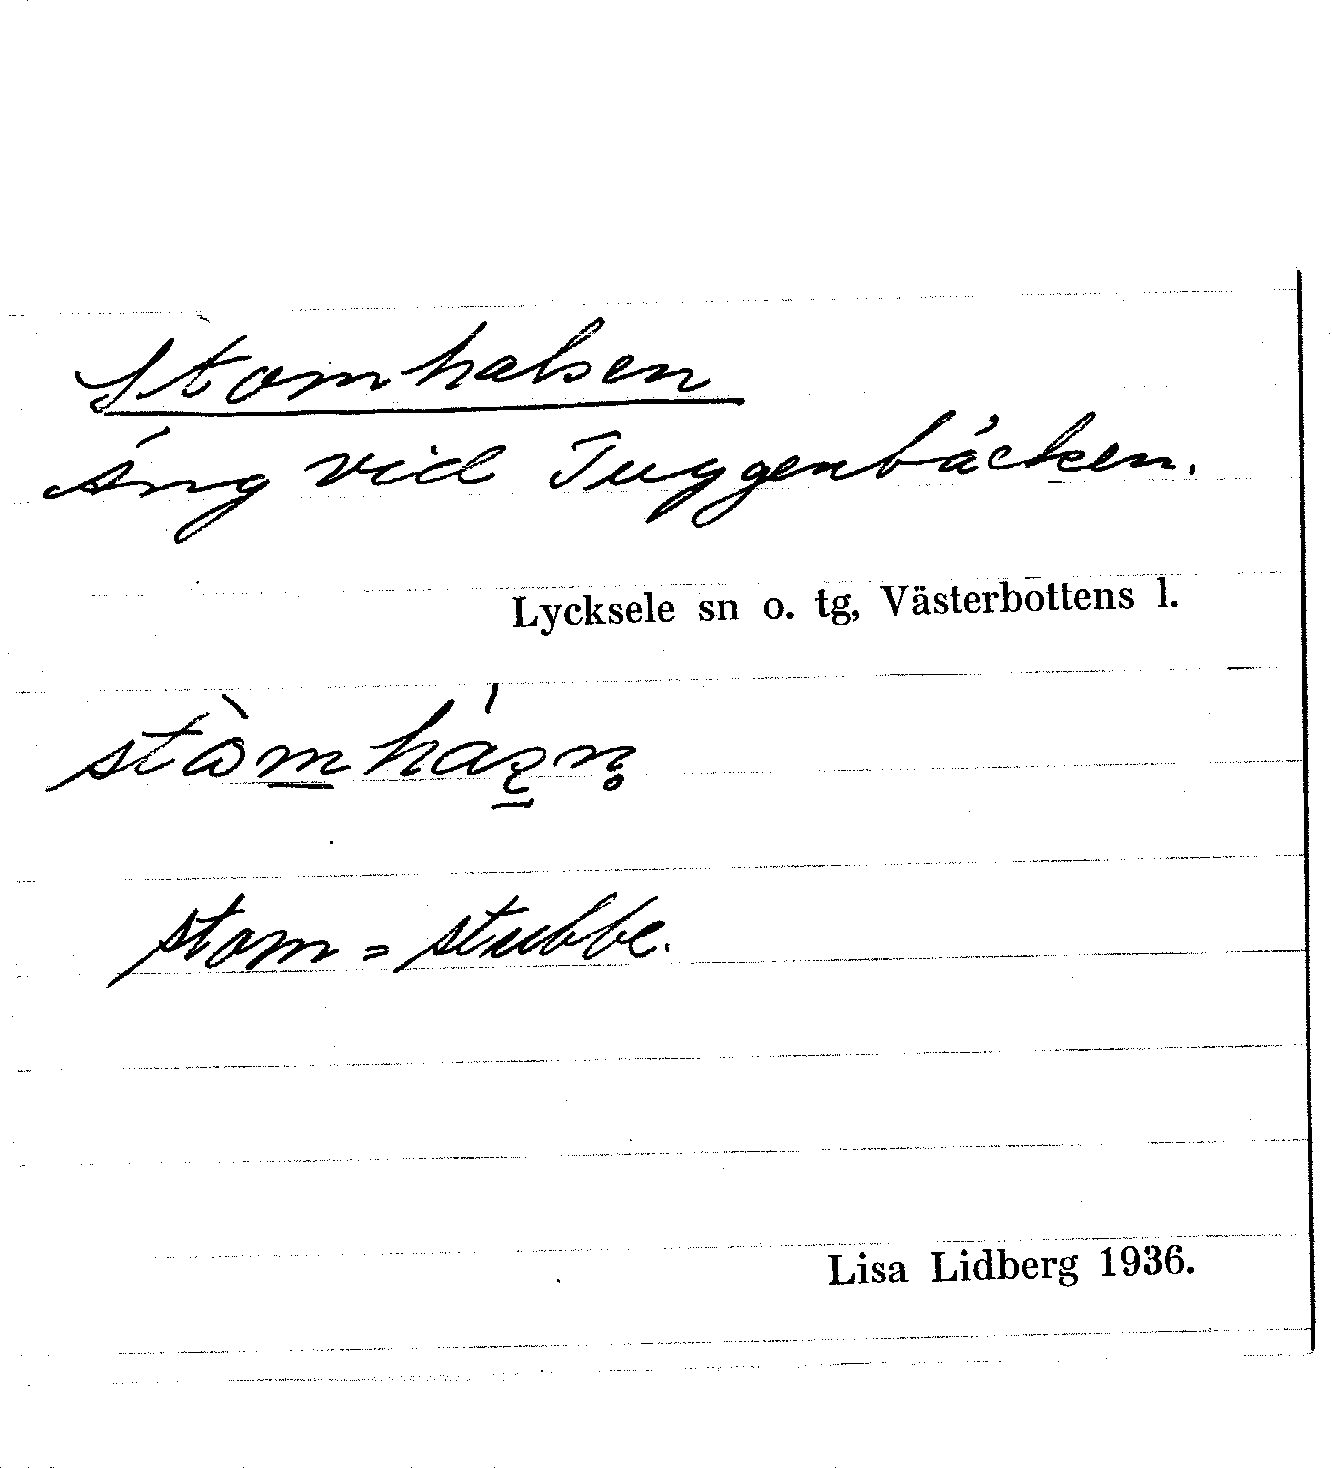 Stomhalsen
Äng vid Tuggenbäcken.
Lycksele sn o. tg, Västerbottens l.
stom = stubbe.
Lisa Lidberg 1936.